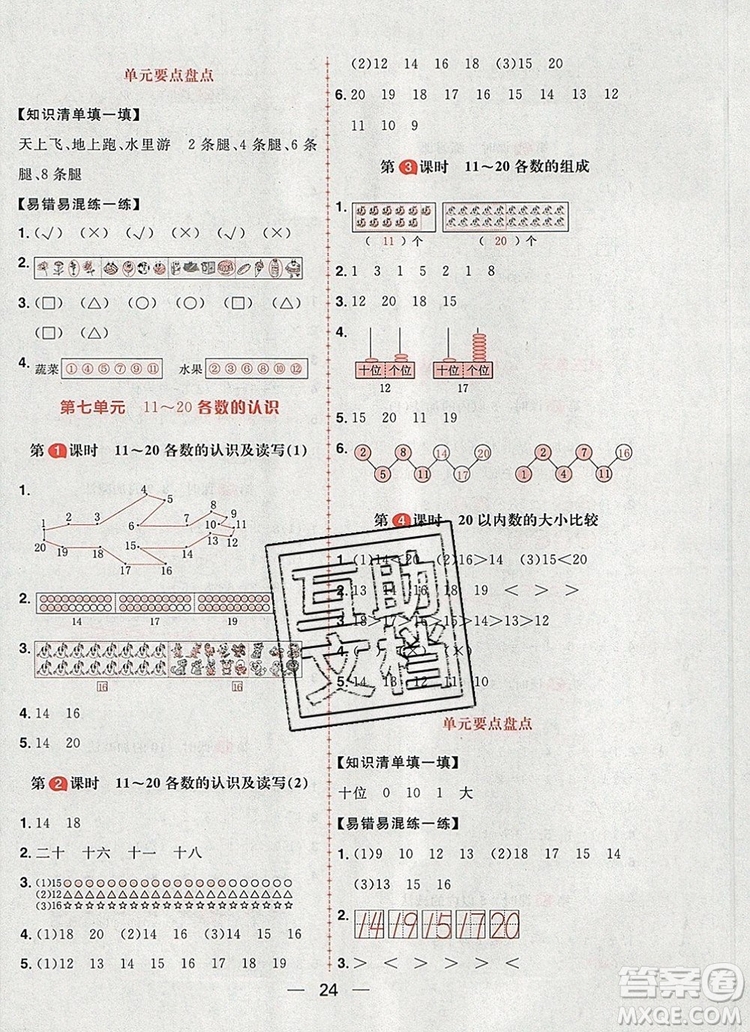 单元要点盘点
【知识清单填一填】
天上飞、地上跑、水里游 2条腿、4条腿、6条
腿、8条腿
【易错易混练一练】
1. (√) (×) (√) (×) (×)
2.
3. (□) (△) (○) (○) (△)
(□) (△)
4. 蔬菜 ①④⑤⑦⑨⑪ 水果 ②③⑥⑧⑩⑫
第七单元 11～20各数的认识
第1课时 11～20各数的认识及读写(1)
1.
4 5
1 2 3 7 6 8 9 10 11 12 13
20 19 18 17 16 15 14
2.
14 17 19
3.
16 16
4. 14 16
5. 20 18
第2课时 11～20各数的认识及读写(2)
1. 14 18
2. 二十 十六 十一 十八
3. (1)15
(2)12
(3)16
4. (1)18 20 (2)13 14 15 19
5. (1)15 16 17 18 19 20
(2)12 14 16 18 (3)15 20
6. 20 19 18 17 16 15 14 13 12
11 10 9
第3课时 11～20各数的组成
1.
(11)个 (20)个
2. 1 3 1 5 2 1 8
3. 12 20 18 15
4.
十位 个位 十位 个位
12 17
5. 15 20 11 19
6. 2 5 8 11 14 17 20 1 4 7 10 13 16
第4课时 20以内数的大小比较
1. (1)14<20 (2)16>14 (3)15<20
2. 13 14 16 18 19 < > < >
3. 19>18>17>16>14>13>12
4. (√) (×) (×)
5. 14 13 19 18 12 17
单元要点盘点
【知识清单填一填】
十位 0 10 1 大
【易错易混练一练】
1. (1)9 10 12 13 (2)19 18 17 16
(3)13 15 16 19
2. 14 19 15 17 20
3. > > > < < <
24
互助
文档
答案圈
MXQE.COM